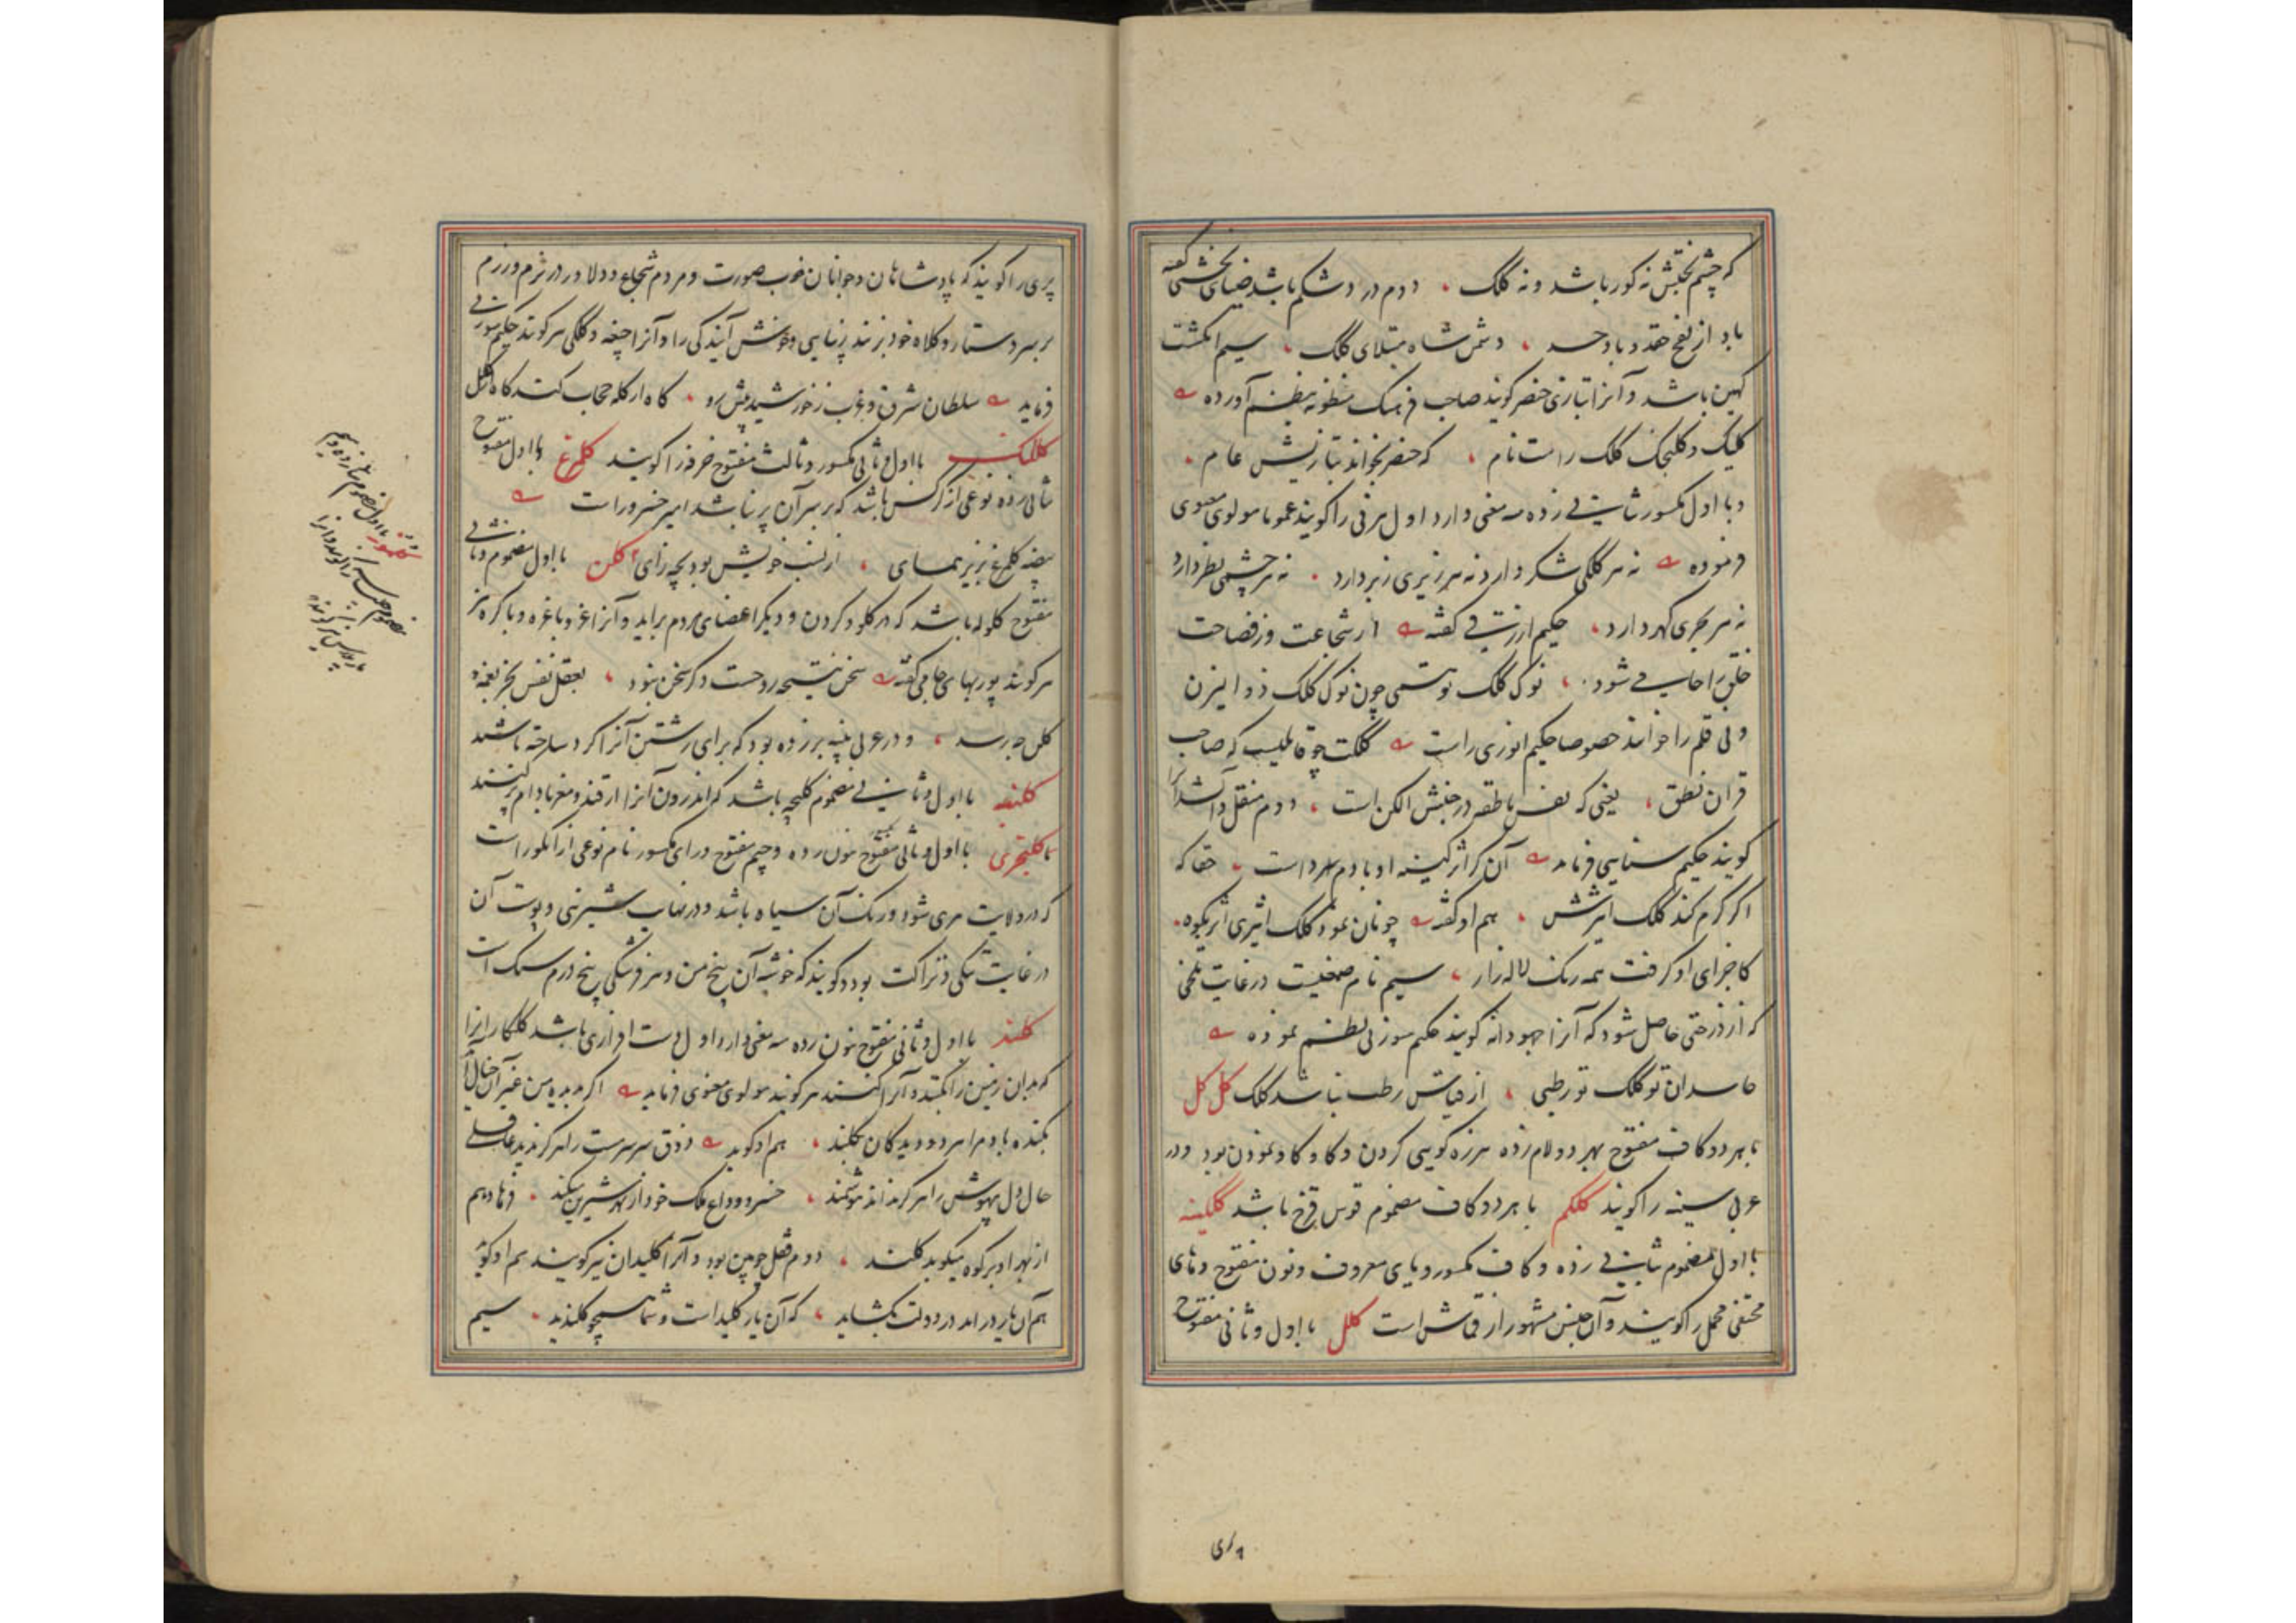 که چشم بختش نه کور باشد و نه کلک ، دوم درد شکم باشد ضیای نخشبی گفته
باد از نفخ حقد و باد حسد ، دشمن شاه مبتلای کلک ، سیم انگشت
کهین باشد و آنرا بتازی خنصر گویند صاحب فرهنگ منظومه بنظم آورده
کلیک و کلنجک کلک راست نام ، که خنصر بخواند بتازیش عام ،
و با اول مکسور بثانی زده سه معنی دارد اول هر نی را گویند عموما مولوی معنوی
فرموده نه هر کلکی شکر دارد نه هر زیری زبر دارد ، نه هر چشمی نظر دارد
نه هر بحری گهر دارد ، حکیم ازرقی گفته از شجاعت وز فصاحت
خلق را حاسب می شود ، نوک کلک تو همی چون نوک کلک ذوالیزن
و نی قلم را خوانند خصوصا حکیم انوری راست کلکت چه قابلیست که صاحب
قران نطق ، یعنی که نفس ناطقه در جنبش الکن است ، دوم منقل و آتشدان را
گویند حکیم سنایی فرماید آن کز اثر کینه او با دم سرد است ، حقا که
اگر گرم کند کلک اثیرش ، هم او گفته چونان نمود کلک اثیری اثر بکوه ،
کاجزای او گرفت همه رنگ لاله زار ، سیم نام صمغیست در غایت تلخی
که از درختی حاصل شود که آنرا جهودانه گویند حکیم سوزنی بنظم نموده
حاسدان تو کلک تو رطبی ، از قیاس رطب نباشد کلک کل کل
با هر دو کاف مفتوح بهر دو لام زده هرزه گویی کردن و کاو کاو نمودن بود و در
عربی سینه را گویند کلکم با هر دو کاف مضموم قوس قزح باشد کلکینه
با اول مضموم بثانی زده و کاف مکسور و یای معروف و نون مفتوح و های
مختفی مخمل را گویند و آن جنسی مشهور از قماش است کلل با اول و ثانی مفتوح
پری
پری را گویند که پادشاهان و جوانان خوب صورت و مردم شجاع و دلاور در بزم و رزم
بر سر دستار و کلاه خود بزنند بزیبایی و خوش آیندگی را و آنرا جیغه و کلگی هم گویند حکیم سوزنی
فرماید سلطان شرق و غرب ز خورشید پیش رو ، گاه از کله حجاب کند گاه از کلل
کللنک با اول و ثانی مکسور و ثالث مفتوح خرفه را گویند کلمرغ با اول مفتوح
بثانی زده نوعی از کرگس باشد که بر سر آن پر نباشد امیر خسرو راست
بیضه کلمرغ بزیر همای ، از نسب خویش بود بچه زای کلن با اول مضموم و ثانی
مفتوح گلوله باشد که در گلو و گردن و دیگر اعضای مردم براید و آنرا غر و باغره و باکره نیز
هم گویند پوربهای جامی گفته سخن نتیجه روحست و گر سخن نبود ، بعقل نفس بجز نغمه و
کلن چه رسد ، و در عربی پنبه بر زده بود که برای رشتن آنرا گرد ساخته باشند
کلنبه با اول و ثانی مضموم کلیچه باشد که اندرون آنرا از قند و مغز بادام پر کنند
کلنجری با اول و ثانی مفتوح بنون زده و جیم مفتوح و رای مکسور نام نوعی از انگور است
که در ولایت هری شود و رنگ آن سیاه باشد و در نهایت شیرینی و پوست آن
در غایت تنکی و نزاکت بود و گویند که خوشه آن پنج من و هر فرشکی پنج درم سنگ است
کلند با اول و ثانی مفتوح بنون زده سه معنی دارد اول دست افزاری باشد گلکاران را
که بدان زمین را بکنند و آنرا کنند هم گویند مولوی معنوی فرماید اگر بدیده من غیر آن خیال آید
بکنده باد مرا هر دو دیدگان بکلند ، هم او گوید ذوق سر سرمست را هرگز ندید عاقلی
حال دل بیهوش را هرگز نداند هوشمند ، خسرو وداع ملک خود از بهر شیرین میکند ، فرهاد هم
از بهر او بر کوه میکوبد کلند ، دوم قفل چوبین بود و آنرا کلیدان نیز گویند هم او گوید
هم آن یار دراید در دولت بگشاید ، که آن یار کلید است و شما همچو کلندید ، سیم